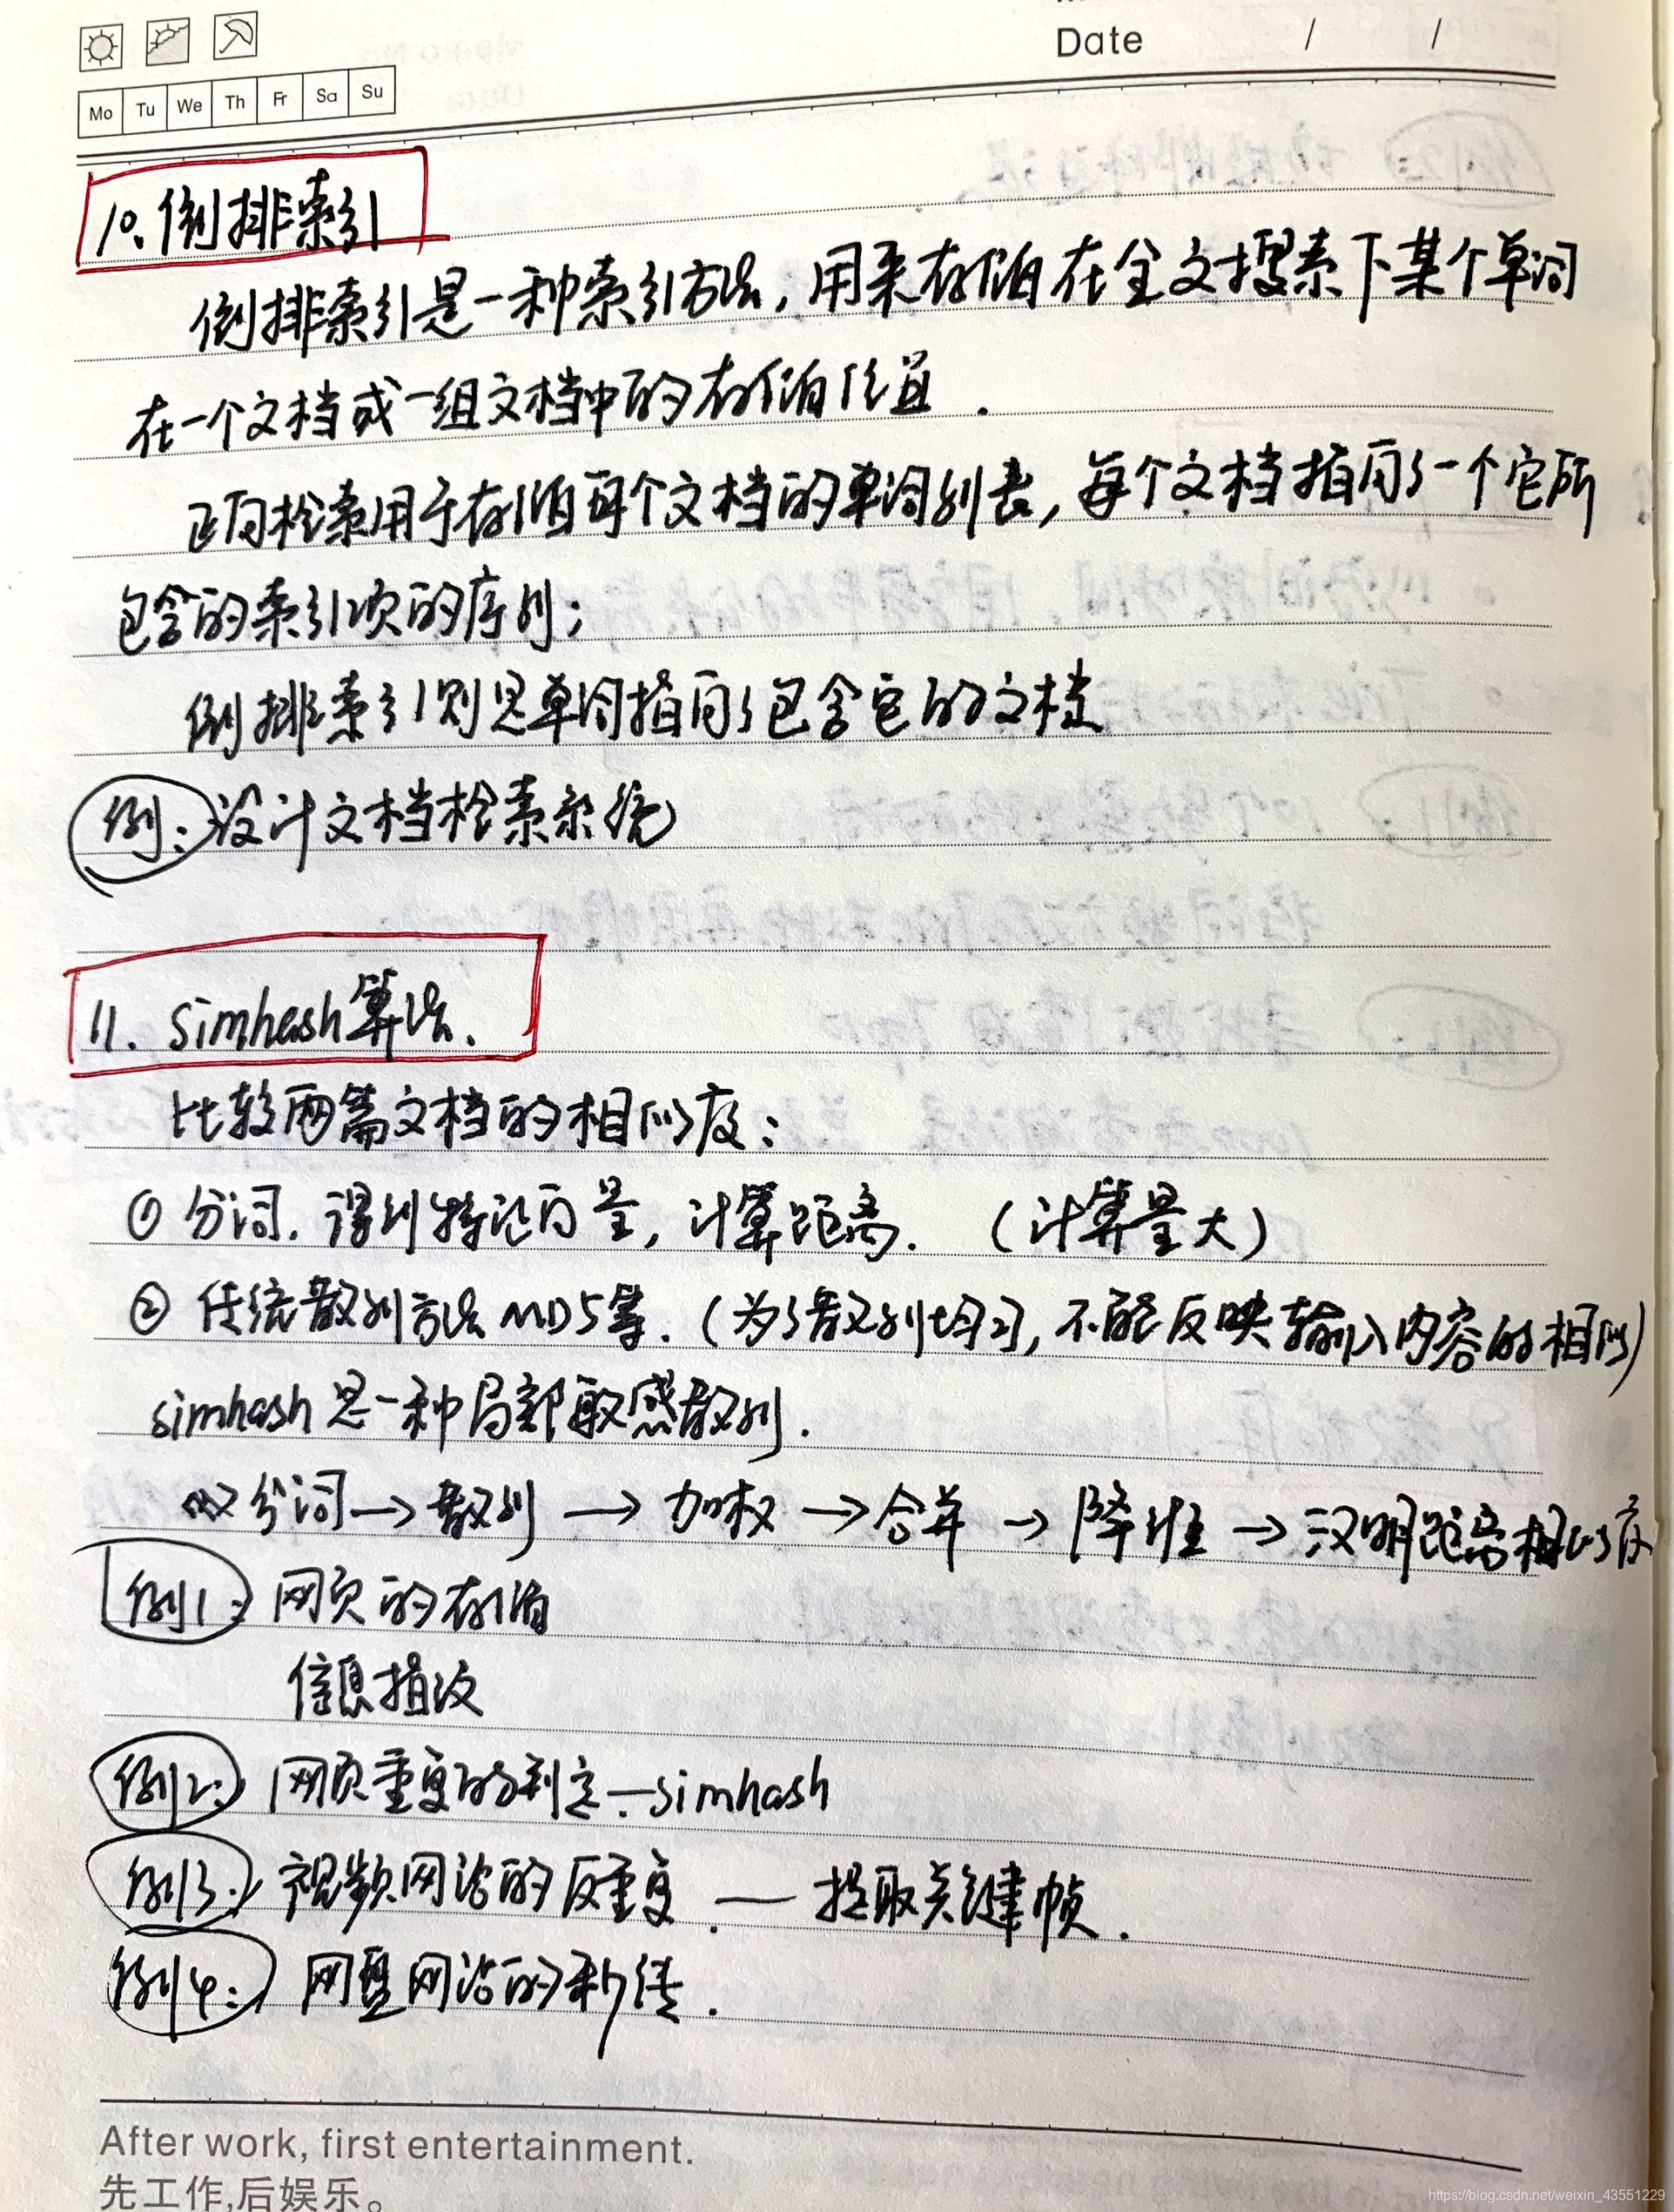 Date / /
Mo Tu We Th Fr Sa Su
10. 倒排索引
倒排索引是一种索引方法, 用来存储在全文搜索下某个单词
在一个文档或一组文档中的存储位置.
正向检索用于存储每个文档的单词列表, 每个文档指向了一个它所
包含的索引项的序列;
倒排索引则是单词指向了包含它的文档
例: 设计文档检索系统
11. Simhash算法.
比较两篇文档的相似度:
① 分词. 得到特征向量, 计算距离. (计算量大)
② 传统散列方法 MD5等. (为了散列均匀, 不能反映输入内容的相似)
simhash 是一种局部敏感散列.
分词→散列→加权→合并→降维→汉明距离相似度
例1: 网页的存储
信息指纹
例2: 网页重复的判定—simhash
例3: 视频网站的反重复. — 提取关键帧.
例4: 网盘网站的秒传.
After work, first entertainment.
先工作,后娱乐。
https://blog.csdn.net/weixin_43551229